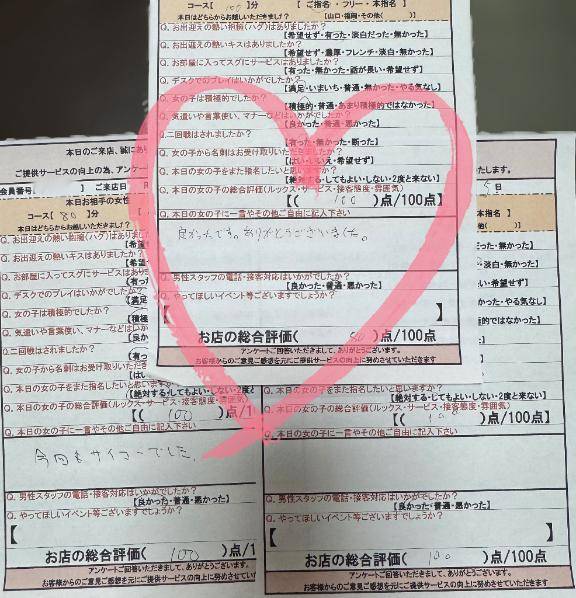 コース【 100 】分
【 ご指名 ・ フリー ・ 本指名 】
本日はどちらからお越しいただきましたか?
【山口・福岡・その他( )】
Q. お出迎えの熱い抱擁(ハグ)はありましたか?
【希望せず・有った・淡白だった・無かった】
Q. お出迎えの熱いキスはありましたか?
【希望せず・濃厚・フレンチ・淡白・無かった】
Q. お部屋に入ってスグにサービスはありましたか?
【有った・無かった・話が長い・希望せず】
Q. デスクでのプレイはいかがでしたか?
【満足・いまいち・普通・無かった・やる気なし】
Q. 女の子は積極的でしたか?
【積極的・普通・あまり積極的ではなかった】
Q. 気遣いや言葉使い、マナーなどはいかがでしたか?
【良かった・普通・悪かった】
Q.二回戦はされましたか?
【有った・無かった・断った】
Q. 女の子から名刺はお受け取りいただきましたか?
【はい・いいえ・希望せず】
Q. 本日の女の子をまた指名したいと思いますか?
【絶対する・してもよい・しない・2度と来ない】
Q. 本日の女の子の総合評価(ルックス・サービス・接客態度・雰囲気)
【( 100 )点/100点】
Q. 本日の女の子に一言やその他ご自由に記入下さい
良かったです。ありがとうございました。
Q. 男性スタッフの電話・接客対応はいかがでしたか?
【良かった・普通・悪かった】
Q. やってほしいイベント等ございますでしょうか?
【 】
お店の総合評価( )点/100点
アンケートご回答いただきまして、ありがとうございます。
お客様からのご意見ご感想を元にご提供サービスの向上に努めさせていただきます
本日のご来店、誠にあ
ご提供サービスの向上の為、アンケー
会員番号. 】 ご来店日
本日お相手の女性
コース【 80 】分
本日はどちらからお越しいただきましたか?
Q. お出迎えの熱い抱擁(ハグ)はありまし
【希
Q. お出迎えの熱いキスはありましたか?
【希望
Q. お部屋に入ってスグにサービスはあり
【有っ
Q. デスクでのプレイはいかがでしたか?
【満足
Q. 女の子は積極的でしたか?
【積極
Q. 気遣いや言葉使い、マナーなどはい
【良か
Q.二回戦はされましたか?
【有っ
Q. 女の子から名刺はお受け取りいただき
【はい
Q. 本日の女の子をまた指名したいと思いますか?
【絶対する・してもよい・しない・2度と
Q. 本日の女の子の総合評価(ルックス・サービス・接客態度・雰囲気)
【( 100 )点/1
Q. 本日の女の子に一言やその他ご自由に記入下さい
今回もサイコーでした
Q. 男性スタッフの電話・接客対応はいかがでしたか?
【良かった・普通・悪かった】
Q. やってほしいイベント等ございますでしょうか?
【
お店の総合評価( 100 )点/1
アンケートご回答いただきまして、ありがとうございます。
お客様からのご意見ご感想を元にご提供サービスの向上に努めさせていた
たします。
5 日
本指名 】
( )】
った・無かった】
・淡白・無かった】
い・希望せず】
かった・やる気なし】
極的ではなかった】
Q. 本日の女の子をまた指名したいと思いますか?
【絶対する・してもよい・しない・2度と来ない】
Q. 本日の女の子の総合評価(ルックス・サービス・接客態度・雰囲気)
【( 100 )点/100点】
Q. 本日の女の子に一言やその他ご自由に記入下さい
Q. 男性スタッフの電話・接客対応はいかがでしたか?
【良かった・普通・悪かった】
Q. やってほしいイベント等ございますでしょうか?
【 】
お店の総合評価( 100 )点/100点
アンケートご回答いただきまして、ありがとうございます。
お客様からのご意見ご感想を元にご提供サービスの向上に努めさせていただきます